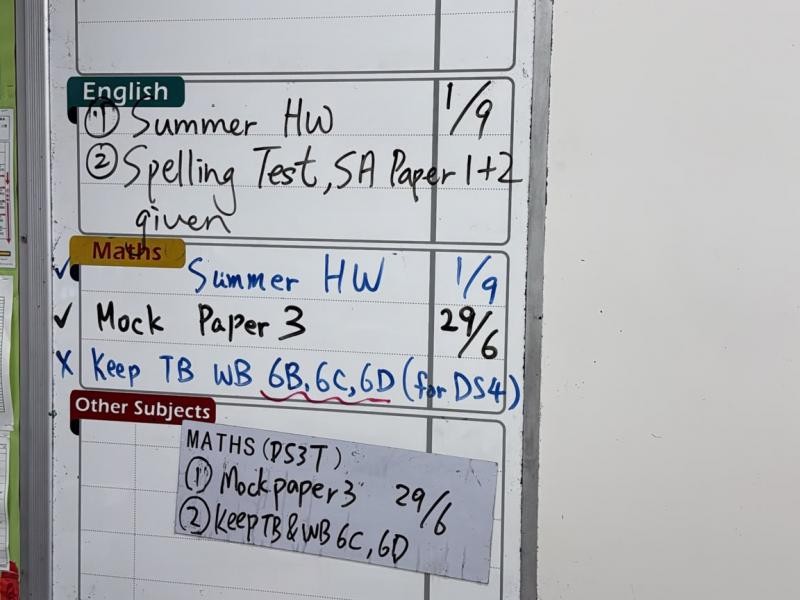 English
① Summer HW 1/9
② Spelling Test, SA Paper 1+2
given
Maths
✓ Summer HW 1/9
✓ Mock Paper 3 29/6
X Keep TB WB 6B, 6C, 6D (for DS4)
Other Subjects
MATHS (DS3T)
① Mock paper 3 29/6
② Keep TB & WB 6C, 6D